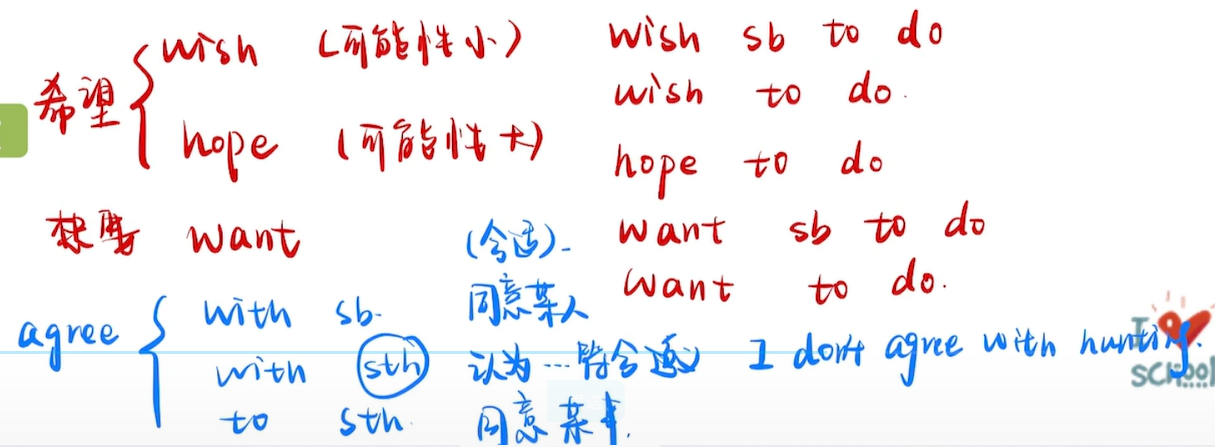 希望 { wish (可能性小) wish sb to do
wish to do.
hope (可能性大) hope to do
想要 want want sb to do
(合适). want to do.
agree { with sb. 同意某人
with sth 认为… 合适 I don't agree with hunting.
to sth. 同意某事.
I SCHOOL